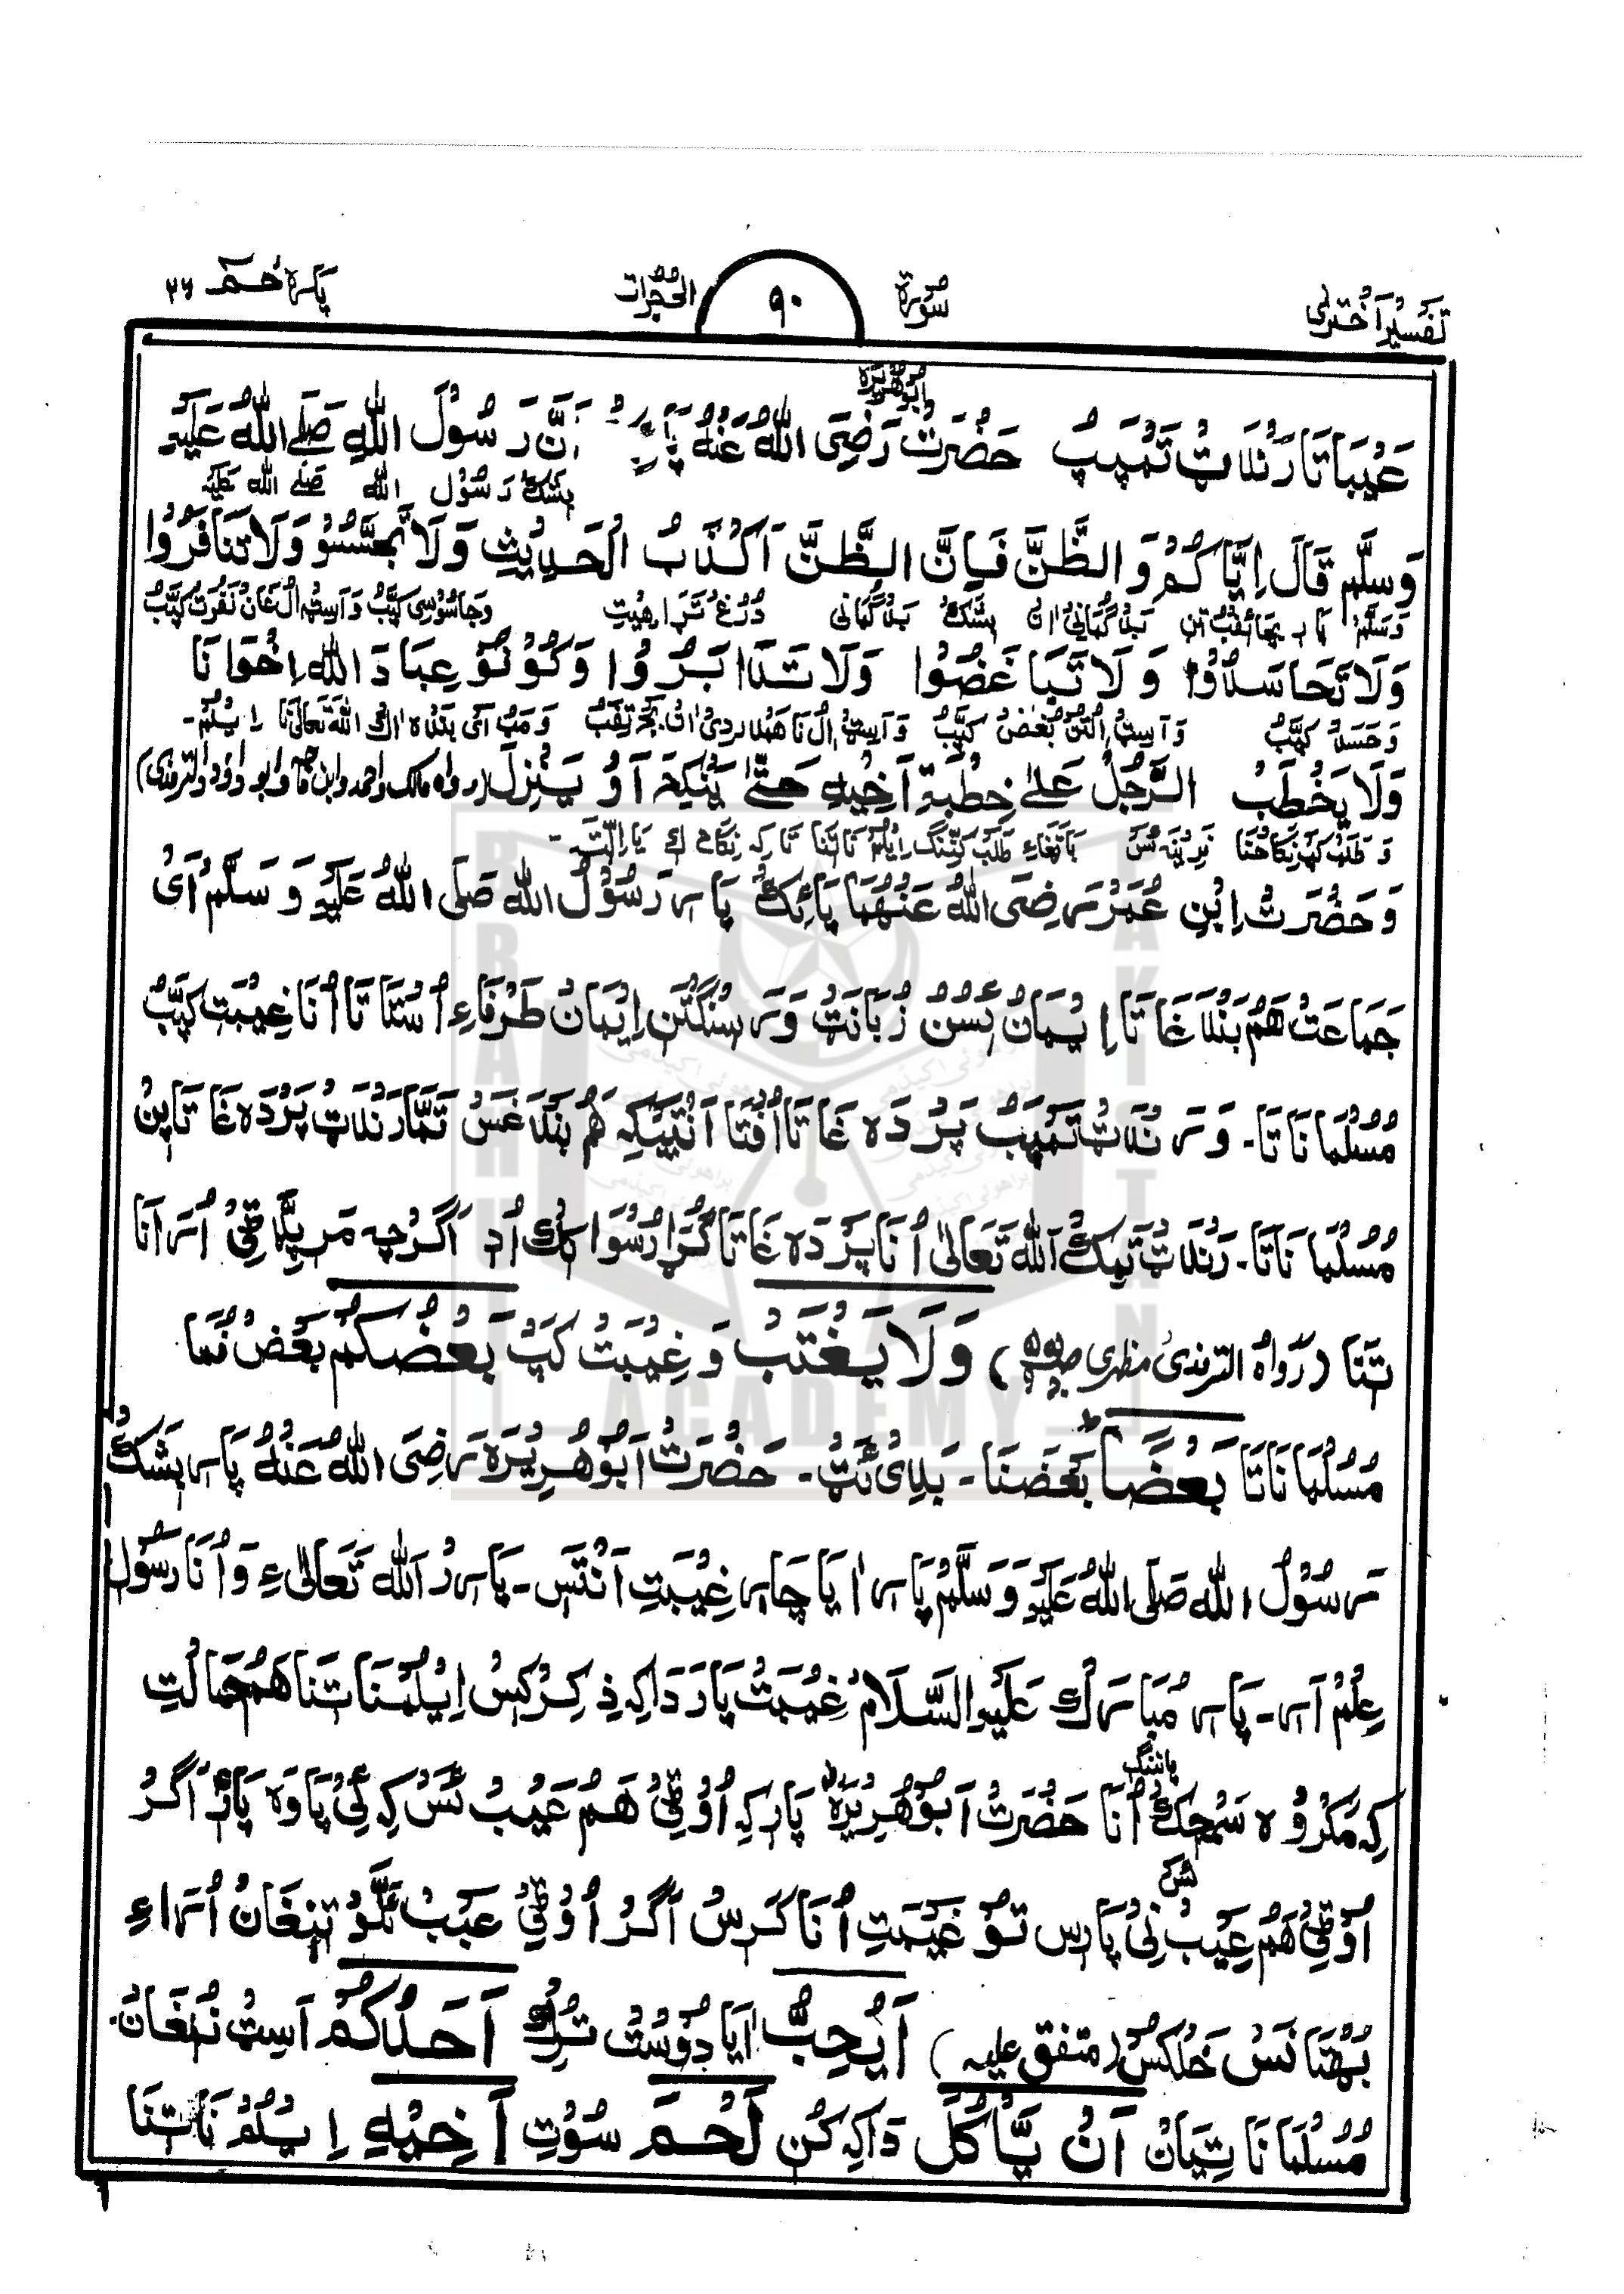 تفسیر اختری
سُورۃ
۹۰
الحُجرات
پارہ حٰمٓ ۲۶
ابوھریرہ
عَیْبَاتَا رَنْدَاٹْ تَمِپَبْ حَضْرَتْ رَضِیَ اللّٰهُ عَنْهُ پَارِ اَنَّ رَسُوْلَ اللّٰهِ صَلَّے اللّٰهُ عَلَیْهِ
بِشَکْ رَسُوْل اللّٰه صَلَّے اللّٰه عَلَیْه
وَسَلَّمَ قَالَ اِیَّاکُمْ وَالظَّنَّ فَاِنَّ الظَّنَّ اَکْذَبُ الْحَدِیْثِ وَلَا تَجَسَّسُوْ وَلَا تَنَافَرُوْا
وَسَلَّمْ پَارِ بَدْگُمَانِیْ اَنْ بِشَکْ بَدْگُمَانِی دُرُغْ تَرَا هِیْتِ وَجَاسُوْسِی کَپَّبْ وَ اَسِٹْ اِلْ غَانْ نَفْرَتْ کَپَّبْ
وَلَا تَحَاسَدُوْا وَلَا تَبَاغَضُوْا وَلَا تَدَابَرُوْا وَکُوْنُوْ عِبَادَ اللّٰهِ اِخْوَانَا
وَ حَسَدْ کَپَّبْ وَ اَسِٹْ اِلْتَنْ بُغْضْ کَپَّبْ وَ اَسِٹْ اِلْ نَا هَمْدَرْدِیْ اَنْ وَ مَبْ اَیْ بَنْدَه اَکْ اللّٰه تَعَالٰی نَا اِیْلُمْ-
وَلَا یَخْطُبُ الرَّجُلُ عَلٰے خِطْبَۃِ اَخِیْهِ حَتّٰے یَنْکِحَ اَوْ یَنْزِلَ (رواه مالک واحمد وابو داؤد والترمذی)
وَ طَلَبْ کَپْ نِکَاحْنَا نَرِیْنَه سَّسْ بَاتْغَاءِ طَلَبْ کَنِّنْگ اِیْلُمْ نَا تَنَا تَا کِہ نِکَاح اے یَا اِلّٹے-
وَ حَضْرَتْ اِبْنِ عُمَرْ رَضِیَ اللّٰهُ عَنْهُمَا پَائِکْ پَارِ رَسُوْلُ اللّٰهِ صَلَی اللّٰهُ عَلَیْهِ وَسَلَّمْ اَیْ
جَمَاعَتْ هَمْ بَنْدَغَا تَا اِیْمَانْ بَسُّنْ زُبَانَٹْ وَ رَسِنْگَتَنِ اِیْمَانْ طَرْفَاءِ اُسْتَا تَا اُنَا غِیْبَتِ کَپَّبْ
مُسْلِمَانَاتَا- وَ رَنْدَاٹْ تَمِپَبْ پَرْدَہ غَا تَا اُفْتَا اَنْتَیْکِه هَمْ بَنْدَغَسْ تَمَّا رَنْدَاٹْ پَرْدَہ غَا تَا پِنْ
مُسْلِمَانَاتَا- رَنْدَاٹْ تَمِکْ اَللّٰه تَعَالٰی اُنَا پَرْدَہ غَا تَا گُڑَا رُسْوَا کِکْ اُدِ اَگَرْچِہ مَرِ پِّہْ ٹِیْ اُرَانَا
تِنَا (رَوَاہُ الترمذی مظهری) وَلَا یَغْتَبْ وَ غِیْبَتْ کَپْ بَعْضُکُمْ بَعْضْ نُمَا
مُسْلِمَانَاتَا بَعْضًا بَعْضَنَا- بَدِیْ ئَٹْ- حَضْرَتْ اَبُوْهُرِیْرَہ رَضِیَ اللّٰهُ عَنْهُ پَارِ بِشَکْ
رَسُوْلُ اللّٰهِ صَلَّی اللّٰهُ عَلَیْهِ وَسَلَّمْ پَارِ اٰیَا چَارِ غِیْبَتِ اَنْتَسِ- پَارِرْ اَللّٰه تَعَالٰیءِ وَ اُنَا رَسُوْل
عِلْمْ اَرِ- پَارِ مُبَارَکْ عَلَیْهِ السَّلَامْ غِیْبَتْ پَارَدَاکِہ ذِکِرْ کِسْ اِیْلُمْنَا تِنَا هَمْ حَالَتِ
پاننگ
کِہ مَکْرُوْہ سَمِجِکْ اُنَا حَضْرَتْ اَبُوْهُرِیْرَہ پَارِ کِہ اُوْٹِیْ هَمْ عَیْبْ ئَسْ کِہ ئِیْ پَاوَہ پَارِ اَگَرْ
اُوْٹِیْ هَمْ عِیْبْ نِیْ پَارِس تَوْ غَیْبَتِ اُنَا کَرِسْ اَگَرْ اُوْٹِیْ عَیْبْ تِنِغَانْ اُرَاءِ
بُهْتَانَسْ خَلْکُسْ (متفق علیه) اَیُحِبُّ اٰیَا دُوْسْتْ تِرِکْ اَحَدُکُمْ اَسِٹْ نُمْغَانْ
مُسْلِمَانَاتِیَانْ اَنْ یَّاْکُلَ دَاکِہ کُنِ لَحْمَ سُوْتِ اَخِیْهِ اِیْلُمْ نَا تِنَا
BRAHUI
ACADEMY
PAKISTAN